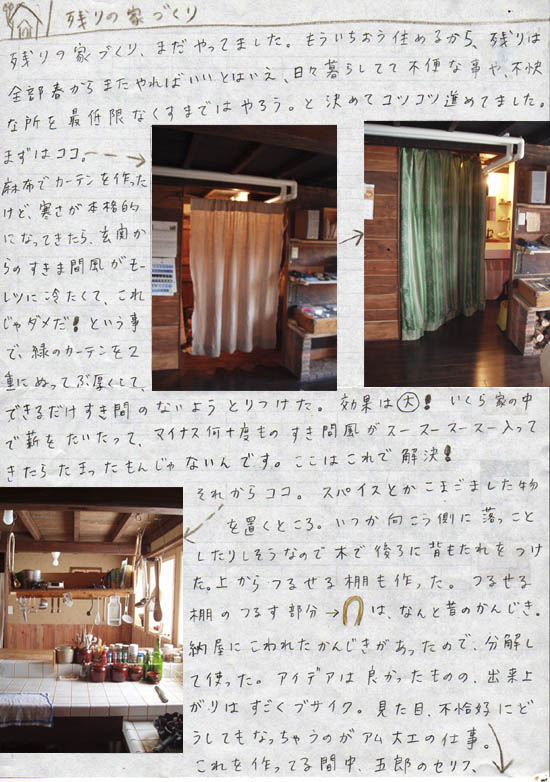 残りの家づくり
残りの家づくり、まだやってました。もういちおう住めるから、残りは
全部春からまたやればいいとはいえ、日々暮らしてて不便な事や、不快
な所を最低限なくすまではやろう。と決めてコツコツ進めてました。
まずはココ。
麻布でカーテンを作った
けど、寒さが本格的
になってきたら、玄関か
らのすきま間風がモー
レツに冷たくて、これ
じゃダメだ!という事
で、緑のカーテンを2
重にぬってぶ厚くして、
できるだけすき間のないようとりつけた。効果は大!いくら家の中
で薪をたいたって、マイナス何十度ものすき間風がスースースースー入って
きたらたまったもんじゃないんです。ここはこれで解決!
それからココ。スパイスとかこまごました物
を置くところ。いつか向こう側に落っこと
したりしそうなので木で後ろに背もたれをつけ
た。上からつるせる棚も作った。つるせる
棚のつるす部分→は、なんと昔のかんじき。
納屋にこわれたかんじきがあったので、分解し
て使った。アイデアは良かったものの、出来上
がりはすごくブサイク。見た目、不恰好にど
うしてもなっちゃうのがアム大工の仕事。
これを作ってる間中、五郎のセリフ、